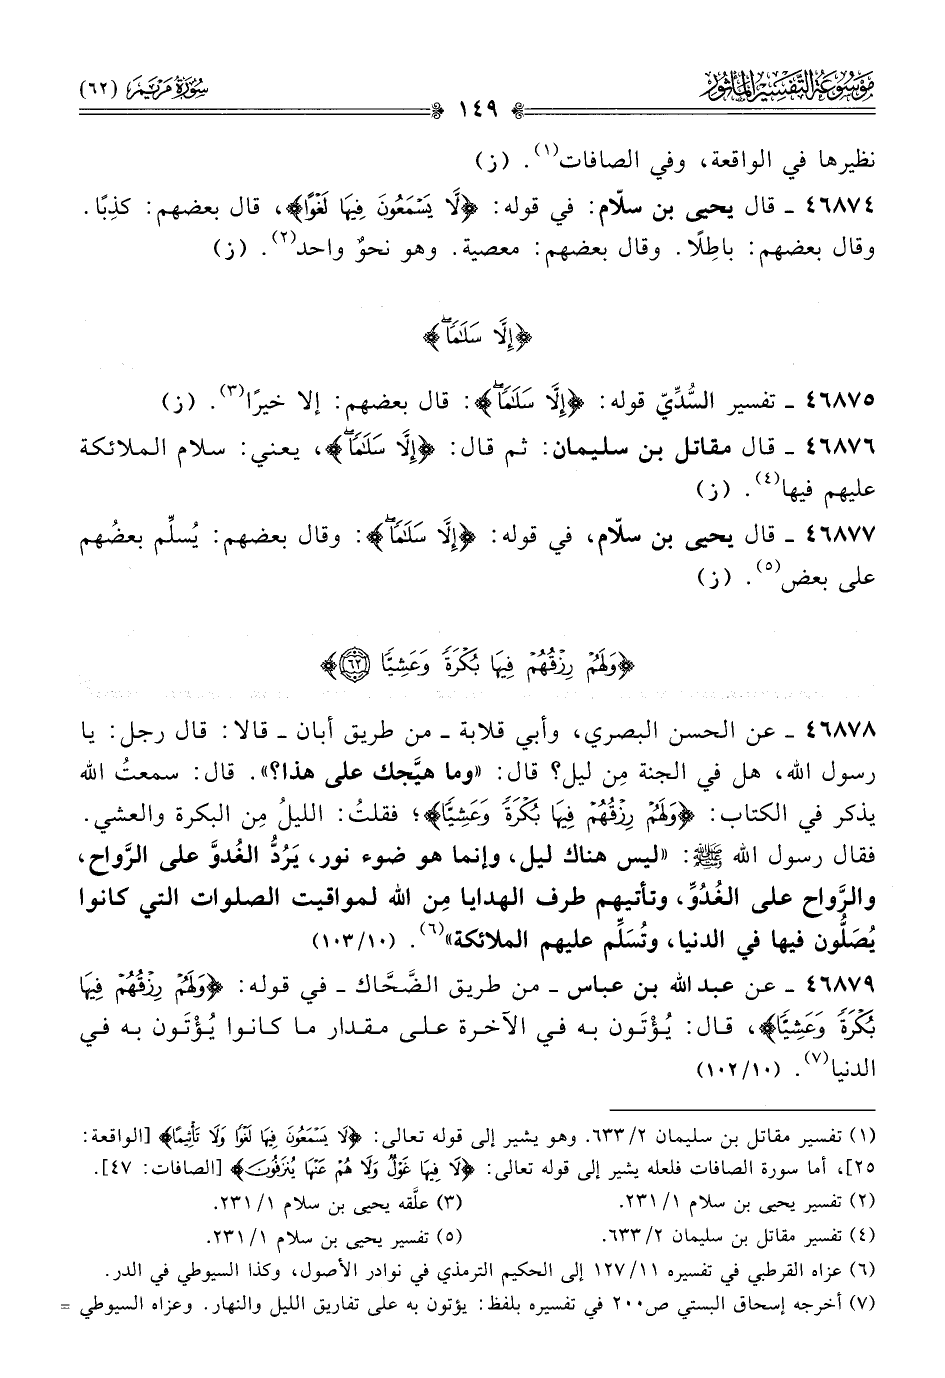 مَوْسُوعَة التَّفْسِير المَأثُور
سُورَةُ مَرْيَم (٦٢)
١٤٩
نظيرها في الواقعة، وفي الصافات(١). (ز)
٤٦٨٧٤ ـ قال يحيى بن سلّام: في قوله: ﴿لَّا يَسْمَعُونَ فِيهَا لَغْوًا﴾، قال بعضهم: كذِبًا.
وقال بعضهم: باطِلًا. وقال بعضهم: معصية. وهو نحوٌ واحد(٢). (ز)
﴿إِلَّا سَلَٰمًا ۖ﴾
٤٦٨٧٥ ـ تفسير السُّدِّيّ قوله: ﴿إِلَّا سَلَٰمًا ۖ﴾: قال بعضهم: إلا خيرًا(٣). (ز)
٤٦٨٧٦ ـ قال مقاتل بن سليمان: ثم قال: ﴿إِلَّا سَلَٰمًا ۖ﴾، يعني: سلام الملائكة
عليهم فيها(٤). (ز)
٤٦٨٧٧ ـ قال يحيى بن سلّام، في قوله: ﴿إِلَّا سَلَٰمًا ۖ﴾: وقال بعضهم: يُسلِّم بعضُهم
على بعض(٥). (ز)
﴿وَلَهُمْ رِزْقُهُمْ فِيهَا بُكْرَةً وَعَشِيًّا ٦٢﴾
٤٦٨٧٨ ـ عن الحسن البصري، وأبي قلابة ـ من طريق أبان ـ قالا: قال رجل: يا
رسول الله، هل في الجنة مِن ليل؟ قال: «وما هيَّجك على هذا؟». قال: سمعتُ الله
يذكر في الكتاب: ﴿وَلَهُمْ رِزْقُهُمْ فِيهَا بُكْرَةً وَعَشِيًّا﴾؛ فقلتُ: الليلُ مِن البكرة والعشي.
فقال رسول الله ﷺ: «ليس هناك ليل، وإنما هو ضوء نور، يَرُدُّ الغُدوَّ على الرَّواح،
والرَّواح على الغُدُوِّ، وتأتيهم طرف الهدايا مِن الله لمواقيت الصلوات التي كانوا
يُصَلُّون فيها في الدنيا، وتُسَلِّم عليهم الملائكة»(٦). (١٠٣/١٠)
٤٦٨٧٩ ـ عن عبد الله بن عباس ـ من طريق الضَّحَّاك ـ في قوله: ﴿وَلَهُمْ رِزْقُهُمْ فِيهَا
بُكْرَةً وَعَشِيًّا﴾، قال: يُؤْتَون به في الآخرة على مقدار ما كانوا يُؤْتَون به في
الدنيا(٧). (١٠٢/١٠)
(١) تفسير مقاتل بن سليمان ٦٣٣/٢. وهو يشير إلى قوله تعالى: ﴿لَا يَسْمَعُونَ فِيهَا لَغْوًا وَلَا تَأْثِيمًا﴾ [الواقعة:
٢٥]، أما سورة الصافات فلعله يشير إلى قوله تعالى: ﴿لَا فِيهَا غَوْلٌ وَلَا هُمْ عَنْهَا يُنزَفُونَ﴾ [الصافات: ٤٧].
(٢) تفسير يحيى بن سلام ٢٣١/١. (٣) علَّقه يحيى بن سلام ٢٣١/١.
(٤) تفسير مقاتل بن سليمان ٦٣٣/٢. (٥) تفسير يحيى بن سلام ٢٣١/١.
(٦) عزاه القرطبي في تفسيره ١٢٧/١١ إلى الحكيم الترمذي في نوادر الأصول، وكذا السيوطي في الدر.
(٧) أخرجه إسحاق البستي ص٢٠٠ في تفسيره بلفظ: يؤتون به على تفاريق الليل والنهار. وعزاه السيوطي =